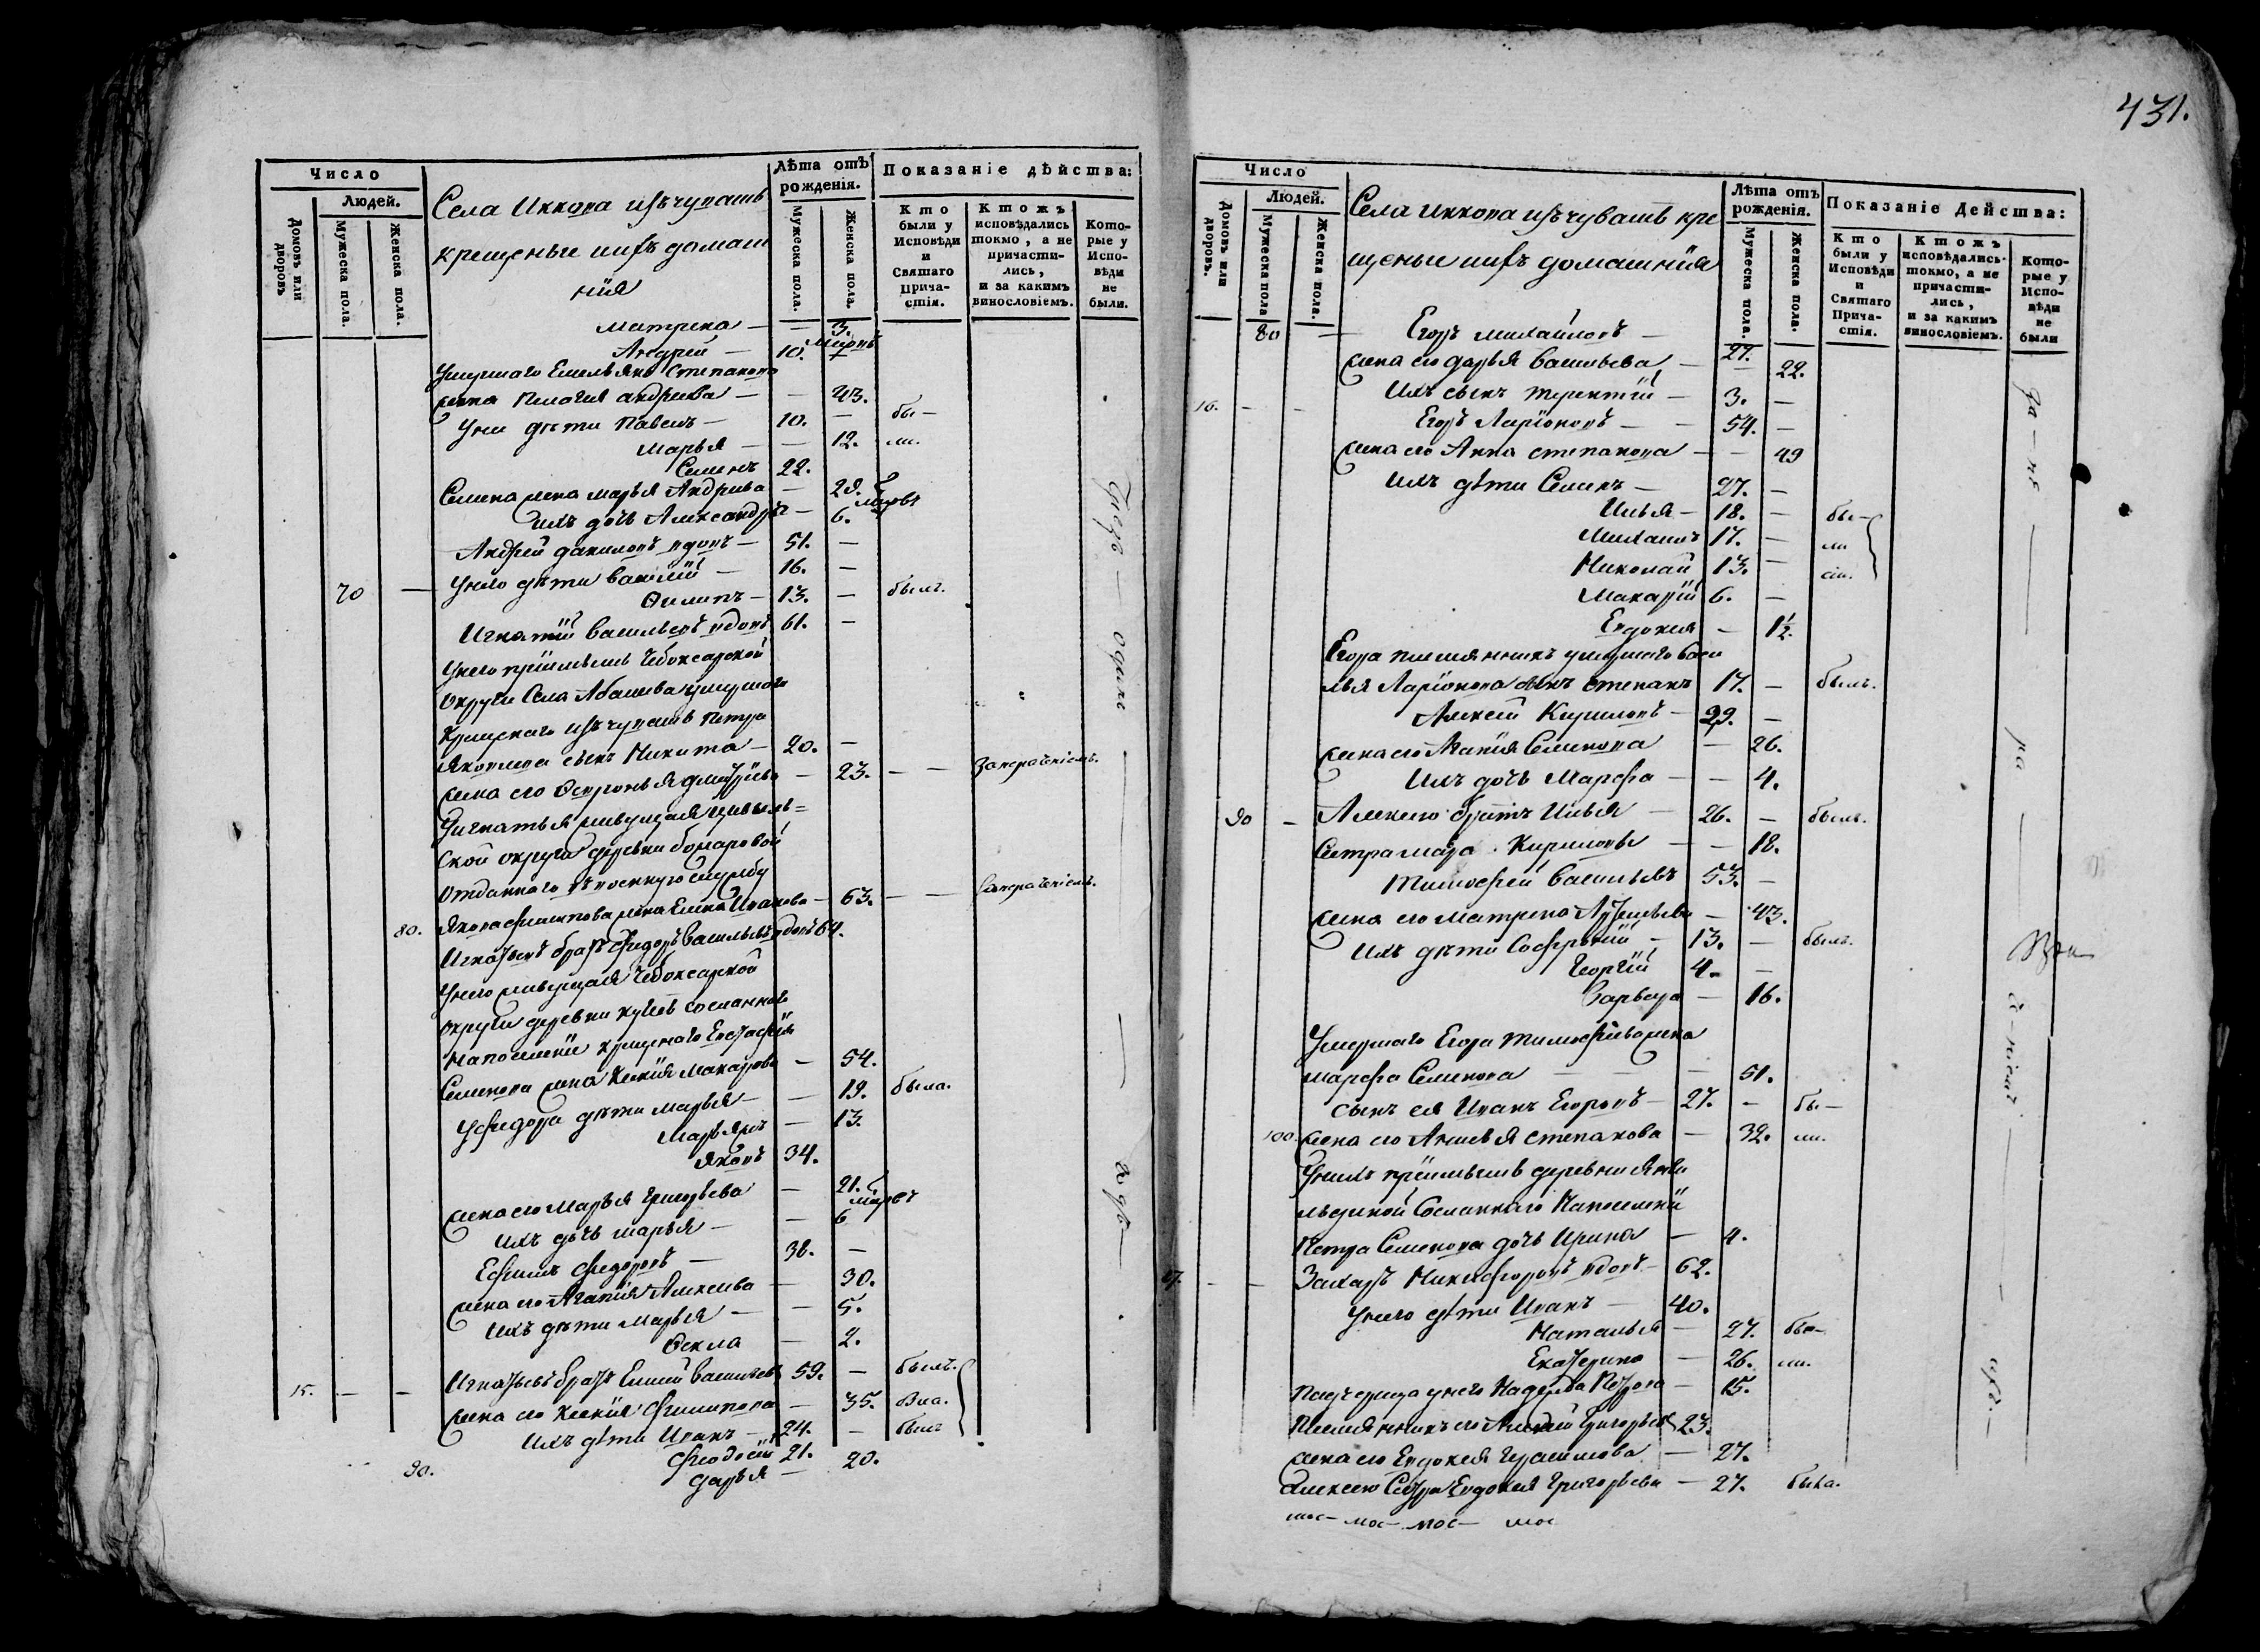 431.
Число
Людей.
Домовъ или дворовъ
Мужеска пола.
Женска пола.
Села Иккова изъ чувашъ
крещеные и ихъ домаш
нія
Лѣта отъ рожденія.
Мужеска пола.
Женска пола.
Показаніе дѣйства:
Кто были у Исповѣди и Святаго Причастія.
Ктожъ исповѣдались токмо, а не причастились, и за какимъ винословіемъ.
Которые у Исповѣди не были.
Матрена — — 3.
Андрей — 10.
Умершаго Емельяна Степанова
жена Пелагея Андреева — — 43.
У ней дѣти Павелъ — 10. — бы—
Марья — — 12. ли.
Семенъ 22.
Семена жена Марья Андреева — 28.
ихъ дочь Александра — 6.
Андрей Даниловъ вдовъ — 51. —
У него дѣти Василій — 16. —
70 — Филипъ — 13. — былъ.
Игнатій Васильевъ вдовъ 61. —
У него пріимышъ Чебоксарской
округи Села Абашева умершаго
Крещенаго изъ чувашъ Петра
Яковлева сынъ Никита — 20. —
жена его Февронья Дмитріева — 23. — —
У Игнатья живущая Цивиль=
ской округи деревни
Отданнаго въ военную службу
80. Якова Филиппова жена Елена Иванова — 63. — —
Игнатьевъ братъ Федоръ Васильевъ вдовъ 64.
У него живущая Чебоксарской
округи деревни сосланнаго
на поселеніе крещенаго Евстафія
Семенова жена Ксенія Макарова — 54.
У Федора дѣти Марья — — 19. была.
Марья — 13.
Яковъ 34.
жена его Марья Григорьева — 21.
Ихъ дочь Марья — — 6
Ефимъ Федоровъ — 38. —
жена его Агафія Алексеева — 30.
Ихъ дѣти Марья — — 5.
Фекла — 2.
15. — — Игнатьевъ братъ Елисей Васильевъ 59. — былъ.
жена его Ксенія Филипова — 35. была.
Ихъ дѣти Иванъ — 24. — былъ
Феодосій 21.
90. Дарья — 20.
Число
Людей.
Домовъ или дворовъ.
Мужеска пола
Женска пола.
Села Иккова изъ чувашъ кре
щеные и ихъ домашнія
Лѣта отъ рожденія.
Мужеска пола.
Женска пола.
Показаніе Действа:
Кто были у Исповѣди и Святаго Причастія.
Ктожъ исповѣдались токмо, а не причастились, и за какимъ винословіемъ.
Которые у Исповѣди не были
80 — Егоръ Михайловъ — 27.
жена его Дарья Васильева — 22.
Ихъ сынъ Терентій — 3. —
16. — — Егоръ Ларіоновъ — — 54. —
жена его Анна Степанова — — 49
Ихъ дѣти Семенъ — 27. —
Илья — 18. — бы—
Михаилъ 17. — ли
Николай 13. —
Макарій 6. —
Евдокея — 1½.
Егора племянникъ умершаго Васи
лья Ларіонова сынъ Степанъ 17. — былъ.
Алексей Кириловъ — 29. —
жена его Агафія Семенова — 26.
Ихъ дочь Марфа — — 4.
90 — Алексею братъ Илья — 26. — былъ.
Сестра Кирилова — — 18.
Тимофей Васильевъ 53. —
жена его Матрена — 43.
Ихъ дѣти Софроній — 13. — былъ.
Георгій 4. —
Варвара — 16.
Умершаго Егора Тимофѣева жена
Марфа Семенова — — 51.
сынъ ея Иванъ Егоровъ — 27. — бы—
100. жена его Анисья Степанова — 32. ли.
У нихъ пріимышъ деревни
Сосланнаго На поселеніи
Петра Семенова дочь Ирина — 4.
17. — — Захаръ Никифоровъ вдовъ — 62.
У него дѣти Иванъ — 40.
Наталья — 27. бы—
Екатерина — 26. ли.
Падчерица у него Надежда Петрова — 15.
Племянникъ его Алексей Григорьевъ 23.
жена его Евдокея Герасимова — 27.
Алексею Сестра Евдокея Григорьева — 27. была.